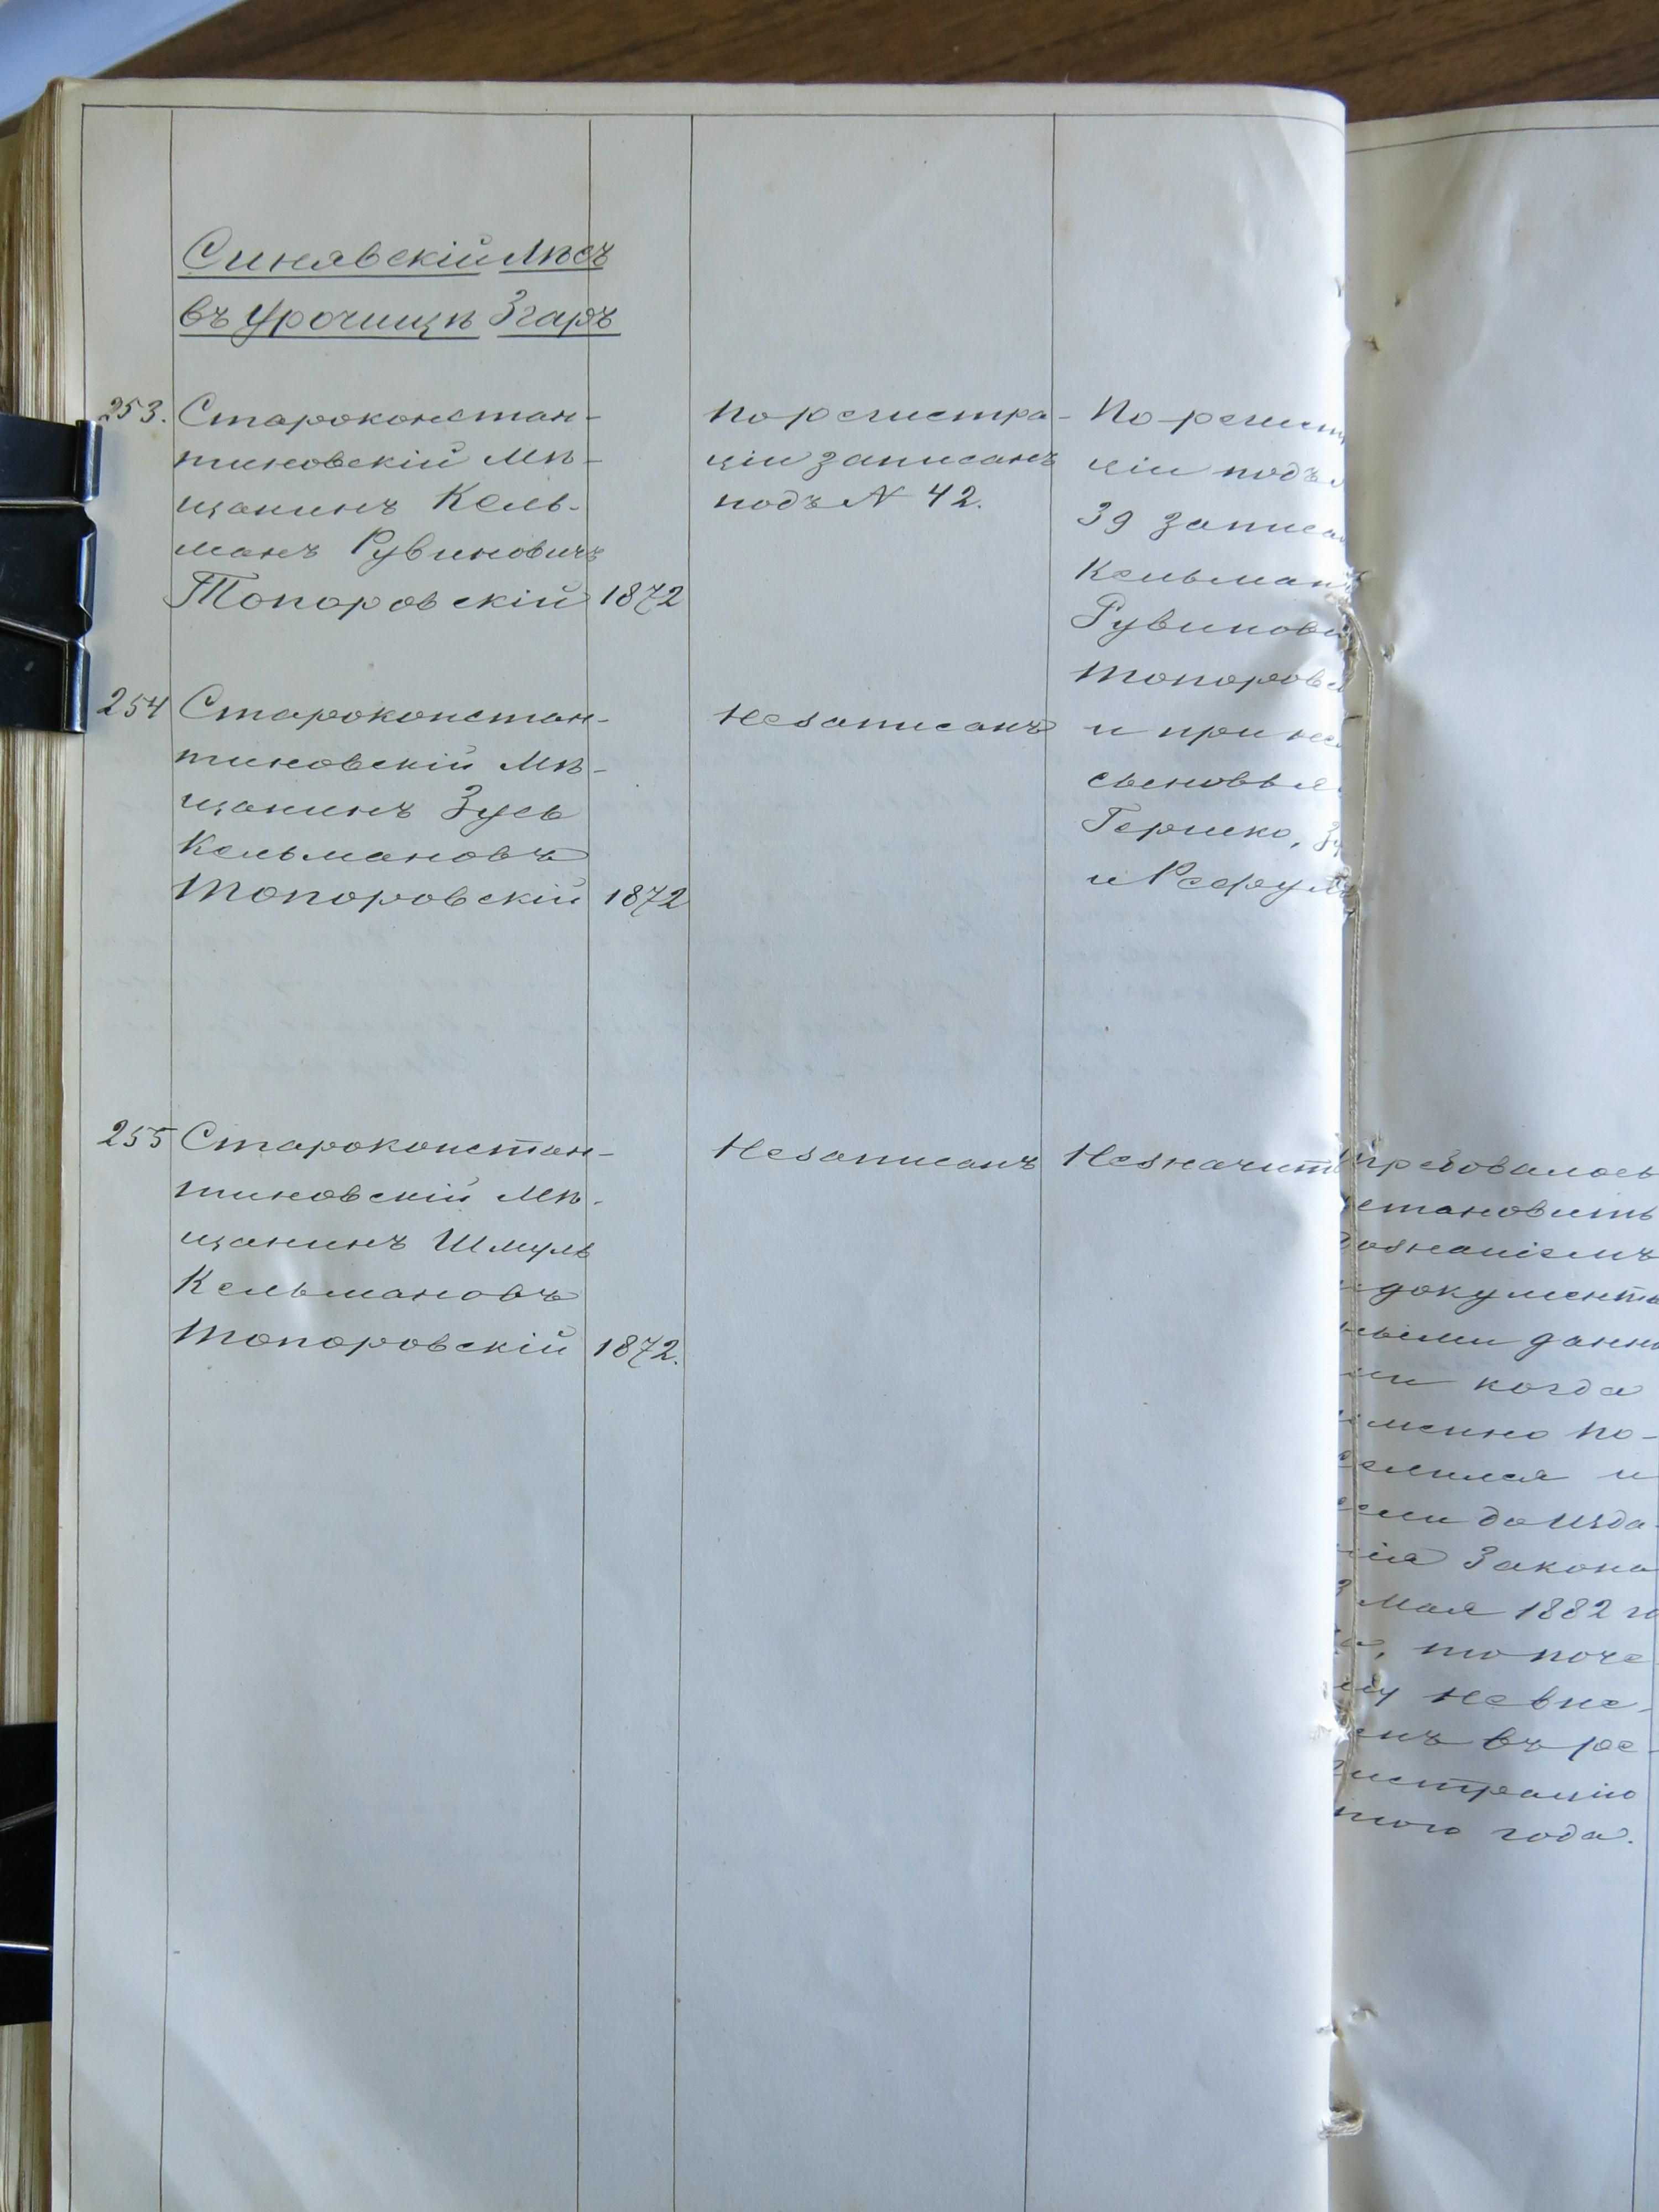 Синявскій Лѣсъ
въ урочищѣ Згаръ
253. Староконстан-
тиновскій Мѣ-
щанинъ Кель-
манъ Рувиновичъ
Топоровскій 1872
По регистра-
ціи записанъ
подъ N 42.
По регист
ціи подъ N
39 записа
Кельманъ
Рувинови
Топоровс
и при не
сыновья
Гершко, Зу
и Рефулъ
254 Староконстан-
тиновскій Мѣ-
щанинъ Зусь
Кельмановъ
Топоровскій 1872
Незаписанъ
255 Староконстан-
тиновскій Мѣ-
щанинъ Шмуль
Кельмановъ
Топоровскій 1872.
Незаписанъ
Незначит
требовалось
становить
дознаніемъ
и документа
ными данны
ми когда
именно по-
селился и
если до изда-
нія Закона
3 Мая 1882 го
да, то поче
му невне-
сенъ въ ре-
гистрацію
того года.